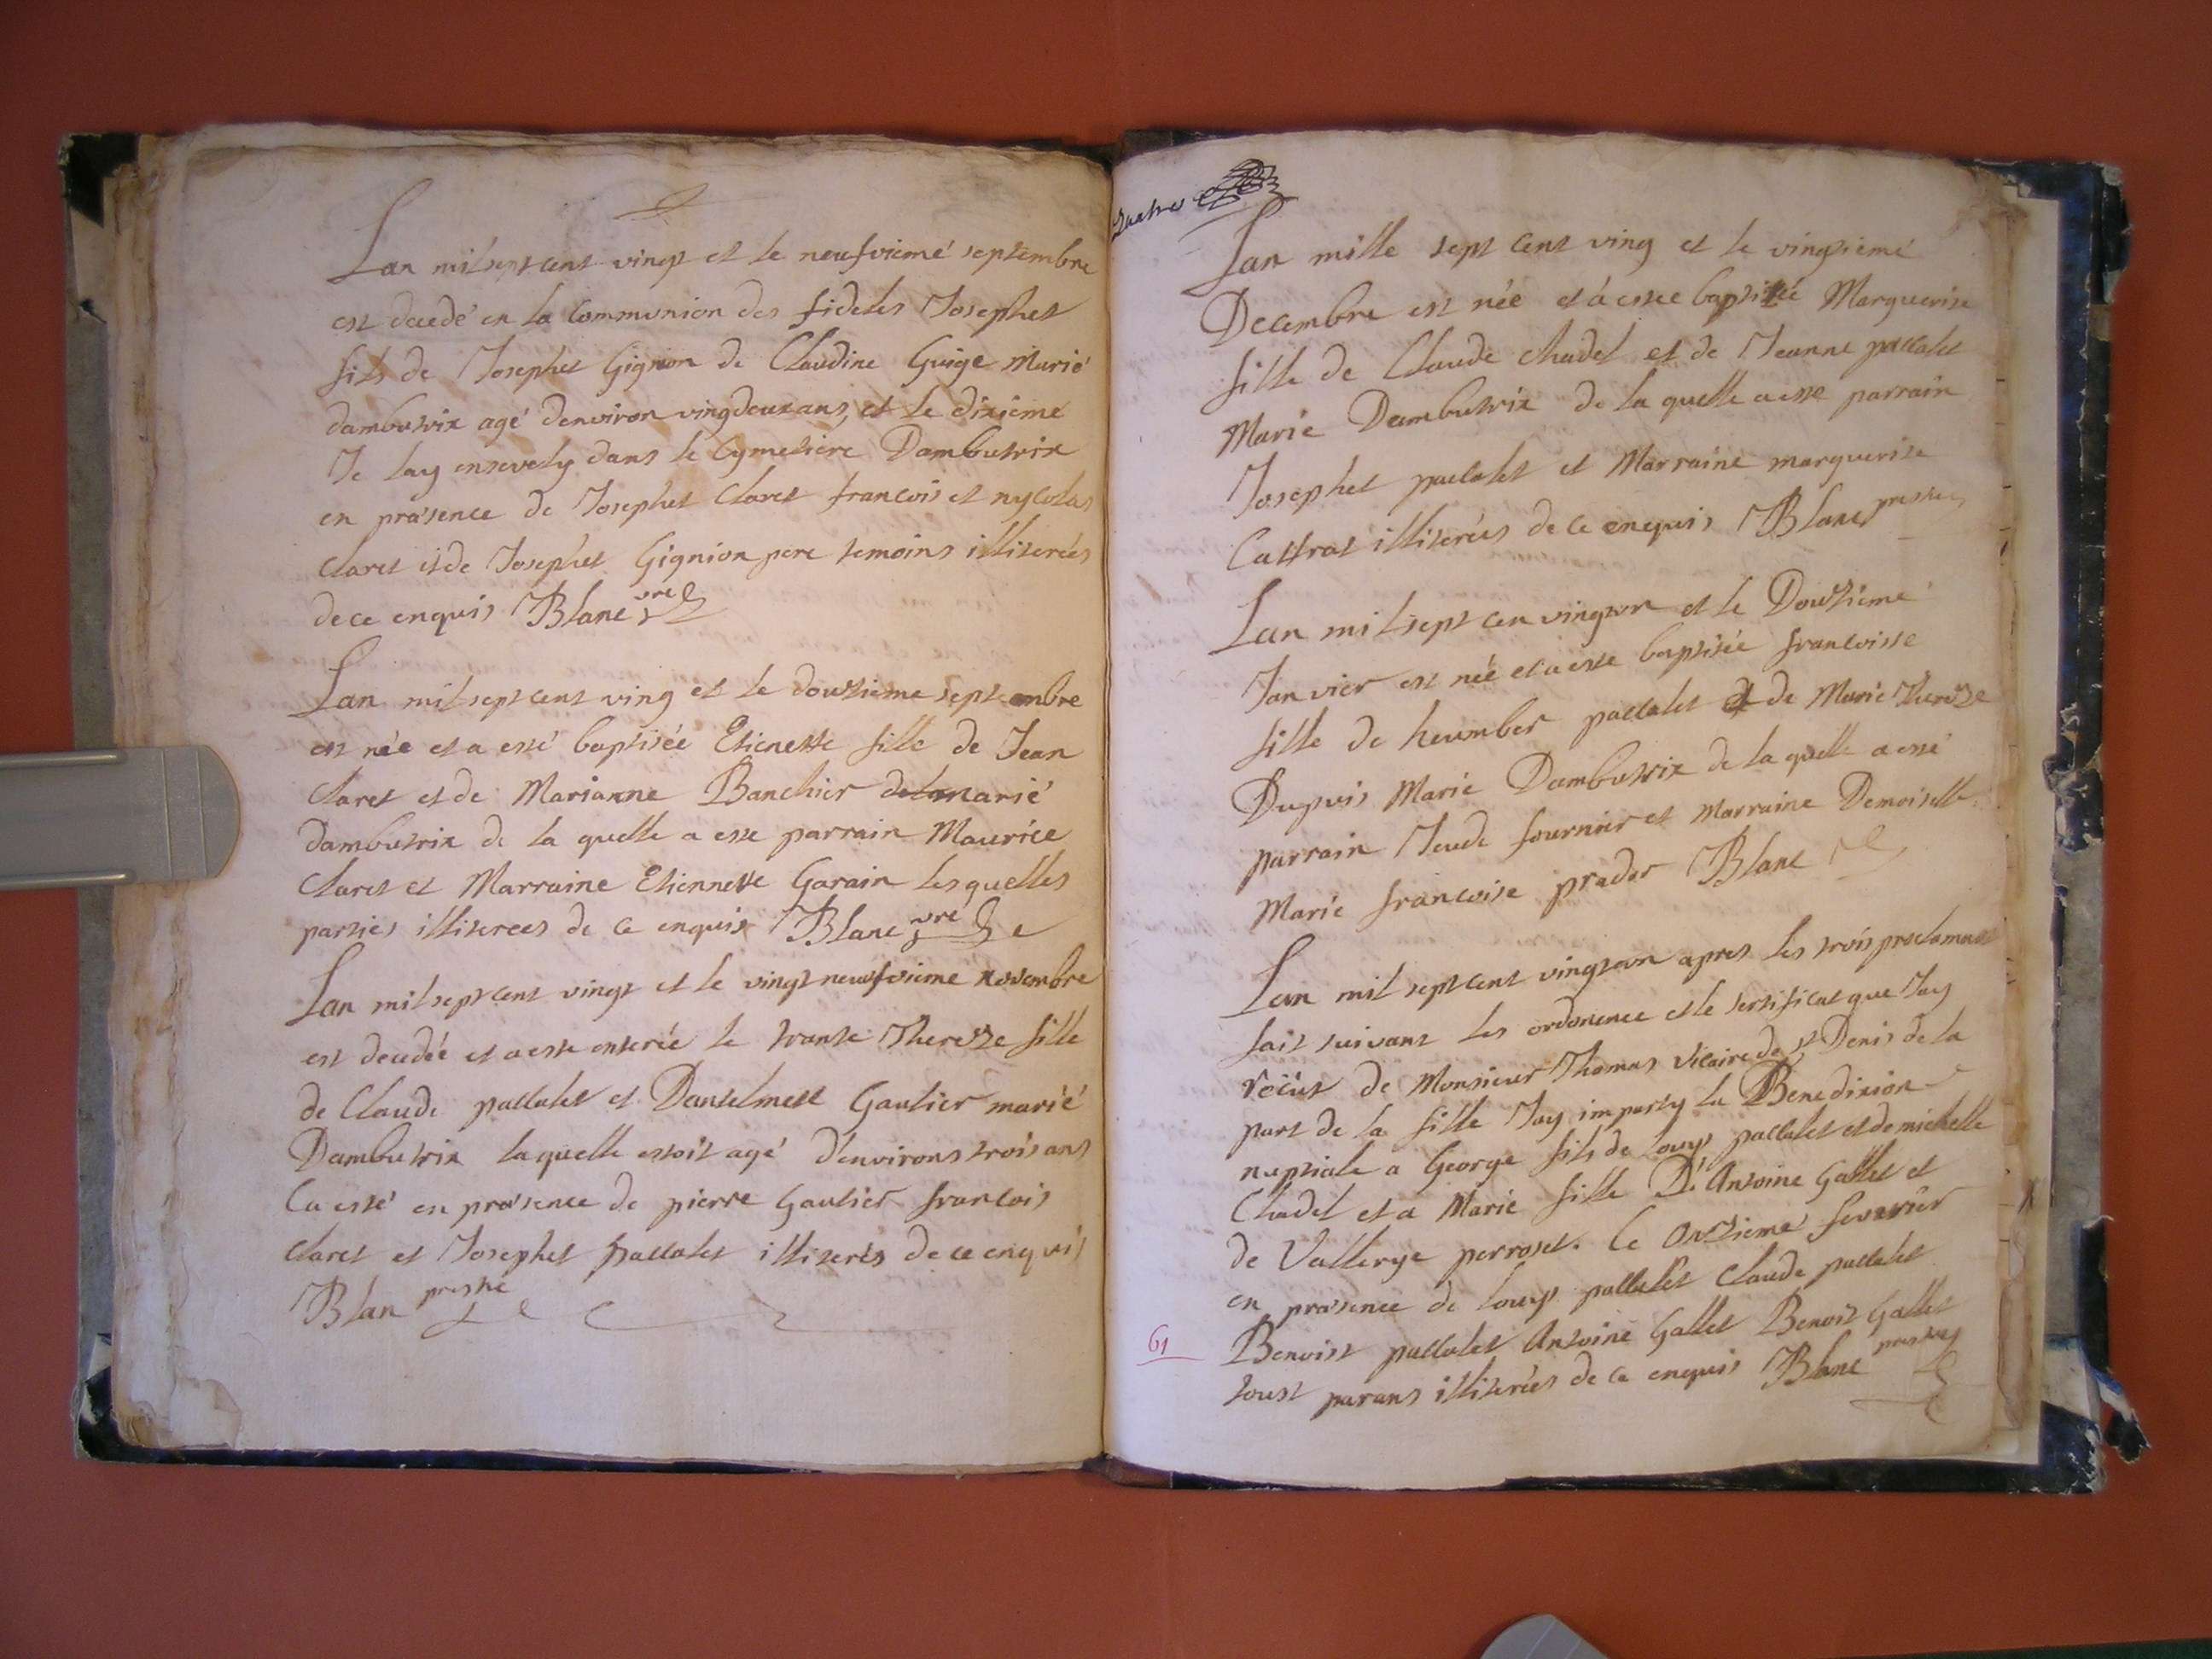 Lan mil sept cent vingt et le neufvieme septembre
est decedé en la Communion des fideles Josephet
fils de Josephet Gignion de Claudine Guige Marié
dambutrix agé denviron vingdeux ans, et le dixieme
Je lay ensevely dans le Cymetiere Dambutrix
en présence de Josephet Claret francois et nycolas
Claret et de Josephet Gignion pere temoins illiterées
de ce enquis Blanc pre
Lan mil sept cent ving et le douzieme septembre
est née et a esté baptisée Etienette fille de Jean
Claret et de Marianne Banchier marié
dambutrix de la quelle a este parrain Maurice
Claret et Marraine Etiennette Garain lesquelles
parties illiterees de ce enquis Blanc pre
Lan mil sept cent vingt et le vingt neufvieme novembre
est decedée et a este enterée le trante Therezze fille
de Claude pallalet et Dantelmett Gautier marié
Dambutrix laquelle estoit agé d'environs trois ans
Ca esté en présence de pierre Gautier francois
Claret et Josephet pallalet illiterés de ce enquis
Blan prestre
Quatre
Lan mille sept cent ving et le vingtieme
Decembre est née et á estee baptisée Marguerite
fille de Claude chadel et de Jeanne pallalet
Marie Dambutrix de la quelle a este parrain
Josephet pallalet et Marraine marguerite
Cattrat illiterées de ce enquis Blanc prestre
Lan mil sept cen vingt un et le Douzieme
Janvier est née et a este baptisée francoisse
fille de heumber pallalet et de Marie Therezze
Dupuis Marie Dambutrix de la quelle a esté
parrain Jeude fournier et Marraine Demoiselle
Marie francoise pradar Blanc
Lan mil sept cent vingt un apres les trois proclamas
fait suivant les ordonence et le sertificat que Jay
récut de Monsieur Thomas Vicaire de St Denis de la
part de la fille Jay imparty la Benedixion
nuptiale a George fils de louys pallalet et de michelle
Chadel et a Marie fille D'Antoine Gallet et
de Vallerye perroset. le Onzieme fevrier
en présence de louys pallalet Claude pallalet
61
Benoist pallalet Antoine Gallet Benoit Gallet
toust parans illiterées de ce enquis Blanc prestre